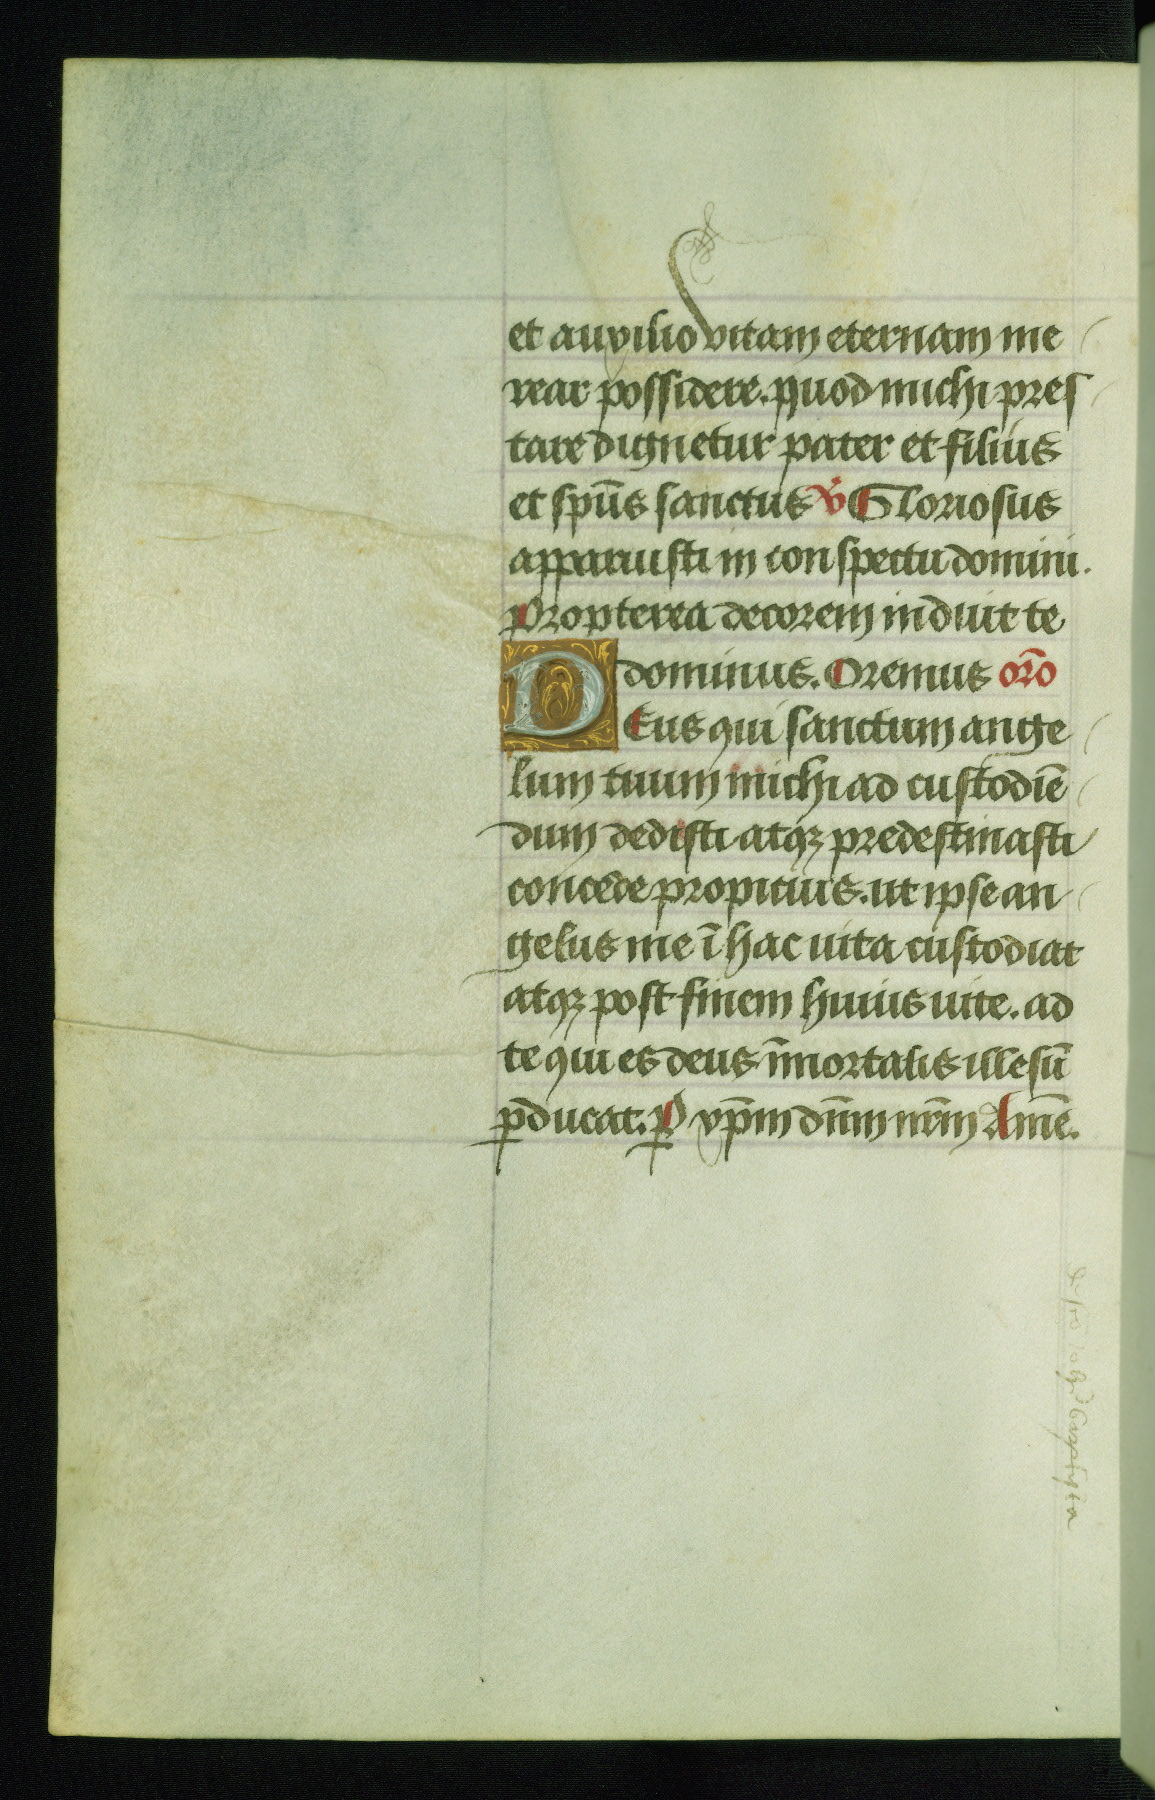 et auxilio vitam eternam me
rear possidere. quod michi pres
tare dignetur pater et filius
et spūs sanctus v̄ Gloriosus
apparuisti in conspectu domini.
Propterea decorem induit te
dominus. Oremus orō
DEus qui sanctum ange
lum tuum michi ad custodiē
dum dedisti atqꝫ predestinasti
concede propitius. ut ipse an
gelus me ī hac uita custodiat
atqꝫ post finem huius uite. ad
te qui es deus īmortalis illesū
ꝑducat. ꝑ xp̄m dn̄m nrm̄ Amē.